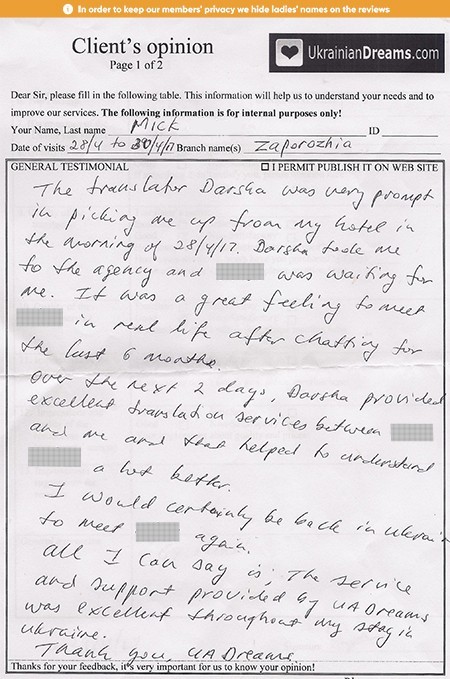 In order to keep our members' privacy we hide ladies' names on the reviews
Client's opinion
Page 1 of 2
UkrainianDreams.com
Dear Sir, please fill in the following table. This information will help us to understand your needs and to
improve our services. The following information is for internal purposes only!
Your Name, Last name MICK ID
Date of visits 28/4 to 30/4/17 Branch name(s) Zaporozhia
GENERAL TESTIMONIAL I PERMIT PUBLISH IT ON WEB SITE
The translator Darsha was very prompt
in picking me up from my hotel in
the morning of 28/4/17. Darsha took me
to the agency and was waiting for
me. It was a great feeling to meet
in real life after chatting for
the last 6 months.
Over the next 2 days, Darsha provided
excellent translation services between
and me and that helped to understand
a lot better.
I would certainly be back in Ukrain
to meet again.
all I can say is, The service
and support provided by UADreams
was excellent throughout my stay in
Ukraine.
Thank you, UADreams.
Thanks for your feedback, it's very important for us to know your opinion!